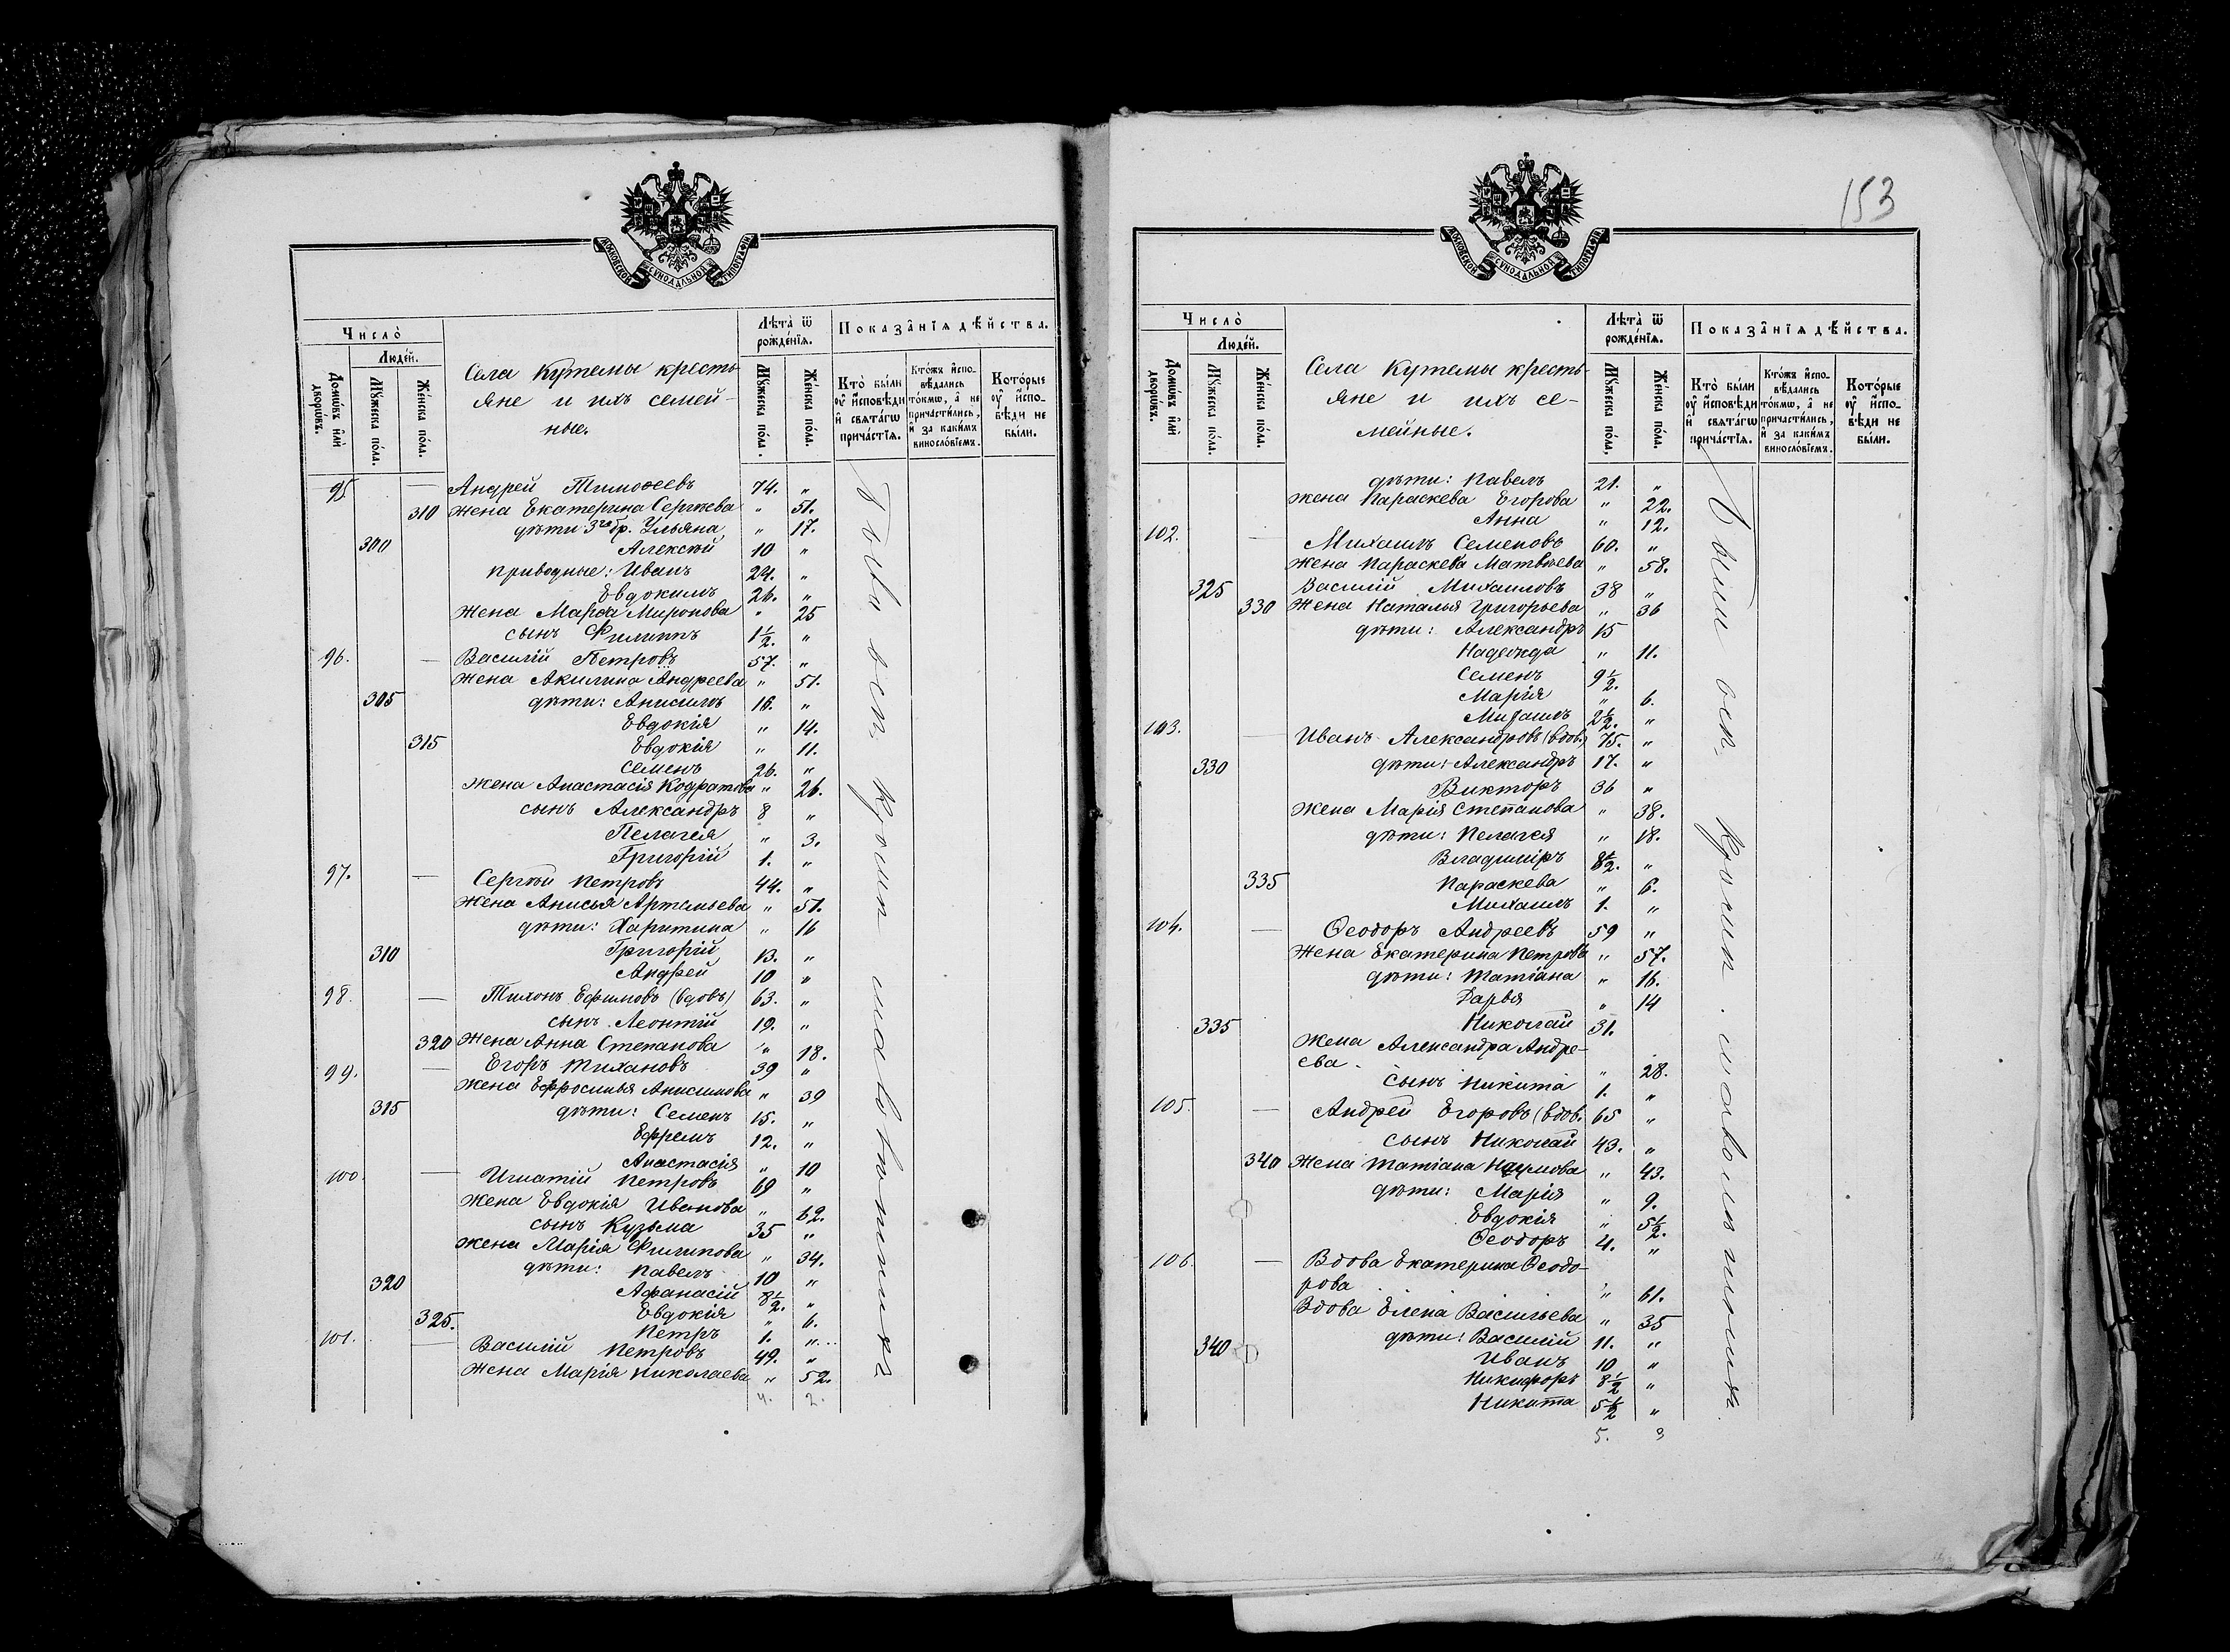 МОСКОВСКОЙ СѴНОДАЛЬНОЙ ТИПОГРАФІИ
Число̀
Люде́й.
Домѡ́въ и҆лѝ дворѡ́въ.
Мꙋ́жеска по́ла.
Же́нска по́ла.
Села Кутемы кресть
яне и ихъ семей-
ные.
Лѣта̀ ѿ рожде́нїѧ.
Мꙋ́жеска по́ла.
Же́нска по́ла.
Показа̂нїѧ дѣ́йства.
Кто̀ бы́ли оу҆ и҆сповѣди и҆ свѧта́гѡ прича́стїѧ.
Кто́жъ и҆спо-вѣ́дались то́кмѡ, а҆ не причасти́лись, и҆ за каки́мъ винослові́емъ.
Кото́рые оу҆ и҆спо-вѣди не бы́ли.
95 — Андрей Тимоѳеевъ 74. „
310 Жена Екатерина Сергѣева „ 51.
дѣти 3го бр. Ульяна „ 17.
300 Алексѣй 10 „
приводные: Иванъ 24. „
Евдокимъ 26. „
Жена Марѳа Миронова „ 25
сынъ Филиппъ 1½. „
96. — Василій Петровъ 57. „
Жена Акилина Андреева „ 51.
305 дѣти: Анисимъ 16. „
Евдокія „ 14.
315 Евдокія „ 11.
Семенъ 26. „
Жена Анастасія Кодратова „ 26.
сынъ Александръ 8 „
Пелагея „ 3.
Григорій 1. „
97. — Сергѣй Петровъ 44. „
Жена Анисья Артемьева „ 51.
дѣти: Харитина „ 16
310 Григорій 13. „
Андрей 10 „
98. — Тихонъ Ефимовъ (вдовъ) 63. „
сынъ Леонтій 19. „
320 Жена Анна Степанова „ 18.
99. — Егоръ Тихановъ 39 „
Жена Ефросинья Анисимова „ 39
315 дѣти: Семенъ 15. „
Ефремъ 12. „
Анастасія „ 10
100. — Игнатій Петровъ 69 „
Жена Евдокія Иванова „ 62.
сынъ Кузьма 35 „
Жена Марія Филипова „ 34.
дѣти: Павелъ 10 „
320 Афанасій 8½. „
325. Евдокія „ 6.
Петръ 1. „
101. — Василій Петровъ 49. „
Жена Марія Николаева „ 52.
4. 2.
кромѣ малолѣтнихъ
153
МОСКОВСКОЙ СѴНОДАЛЬНОЙ ТИПОГРАФІИ
Число̀
Люде́й.
Домѡ́въ и҆лѝ дворѡ́въ.
Мꙋ́жеска по́ла.
Же́нска по́ла.
Села Кутемы кресть-
яне и ихъ се-
мейные.
Лѣта̀ ѿ рожде́нїѧ.
Мꙋ́жеска по́ла.
Же́нска по́ла.
Показа̂нїѧ дѣ́йства.
Кто̀ бы́ли оу҆ и҆сповѣди и҆ свѧта́гѡ прича́стїѧ.
Кто́жъ и҆спо-вѣ́дались то́кмѡ, а҆ не причасти́лись, и҆ за каки́мъ винослові́емъ.
Кото́рые оу҆ и҆спо-вѣди не бы́ли.
дѣти: Павелъ 21. „
Жена Параскева Егорова „ 22.
Анна „ 12.
102. — Михаилъ Семеновъ 60. „
Жена Параскева Матвѣева „ 58.
325 Василій Михаиловъ 38 „
330 Жена Наталья Григорьева „ 36
дѣти: Александръ 15
Надежда „ 11.
Семенъ 9½.
Марія „ 6.
Михаилъ 2½. „
103. — Иванъ Александровъ (вдов.) 75. „
330 дѣти: Александръ 17. „
Викторъ 36 „
Жена Марія Степанова „ 38.
дѣти: Пелагея „ 18.
Владиміръ 8½. „
335 Параскева „ 6.
Михаилъ 1. „
104. — Ѳеодоръ Андреевъ 59 „
Жена Екатерина Петрова „ 57.
дѣти: Татіана „ 16.
Дарья „ 14
335 Николай 31.
Жена Александра Андре-
ева „ 28.
Сынъ Никита 1. „
105. — Андрей Егоровъ (вдов. 65 „
сынъ Николай 43. „
340 Жена Татіана Наумова „ 43.
дѣти: Марія „ 9.
Евдокія „ 5½.
Ѳеодоръ 4. „
106. — Вдова Екатерина Ѳеодо-
рова „ 61.
Вдова Елена Васильева „ 35
340 дѣти: Василій 11. „
Иванъ 10 „
Никифоръ 8½ „
Никита 5½ „
5. 3
Были кромѣ малолѣтнихъ